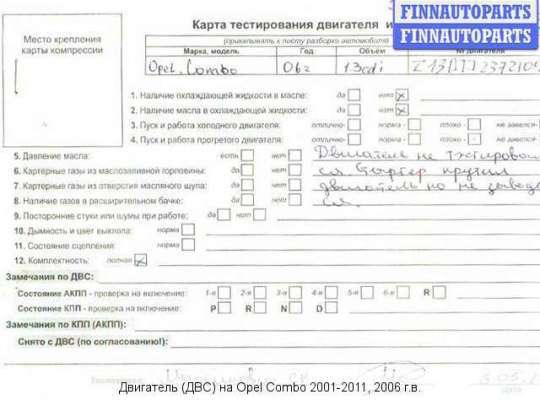 FINNAUTOPARTS
FINNAUTOPARTS
Карта тестирования двигателя и
Место крепления карты компрессии
(прикалывать к листу разборки автомобиля
Марка, модель Год Объём № двигателя
Opel. Combo 06г 13cdi
1. Наличие охлаждающей жидкости в масле: да нет
2. Наличие масла в охлаждающей жидкости: да нет
3. Пуск и работа холодного двигателя: отлично- норма - плохо - не завелся-
4. Пуск и работа прогретого двигателя: отлично- норма - плохо - не завелся-
5. Давление масла: есть нет Двигатель не тестировал
6. Картерные газы из маслозаливной горловины: да нет ся. Стартер крутил
7. Картерные газы из отверстия масляного щупа: да нет двигатель но не завел
8. Наличие газов в расширительном бачке: да нет ся.
9. Посторонние стуки или шумы при работе: да нет
10. Дымность и цвет выхлопа: норма
11. Состояние сцепления: норма
12. Комплектность: полная
Замечания по ДВС:
Состояние АКПП - проверка на включение: 1-я 2-я 3-я 4-я 5-я 6-я R
Состояние КПП - проверка на включение: P R N D
Замечания по КПП (АКПП):
Снято с ДВС (по согласованию!):
Двигатель (ДВС) на Opel Combo 2001-2011, 2006 г.в.